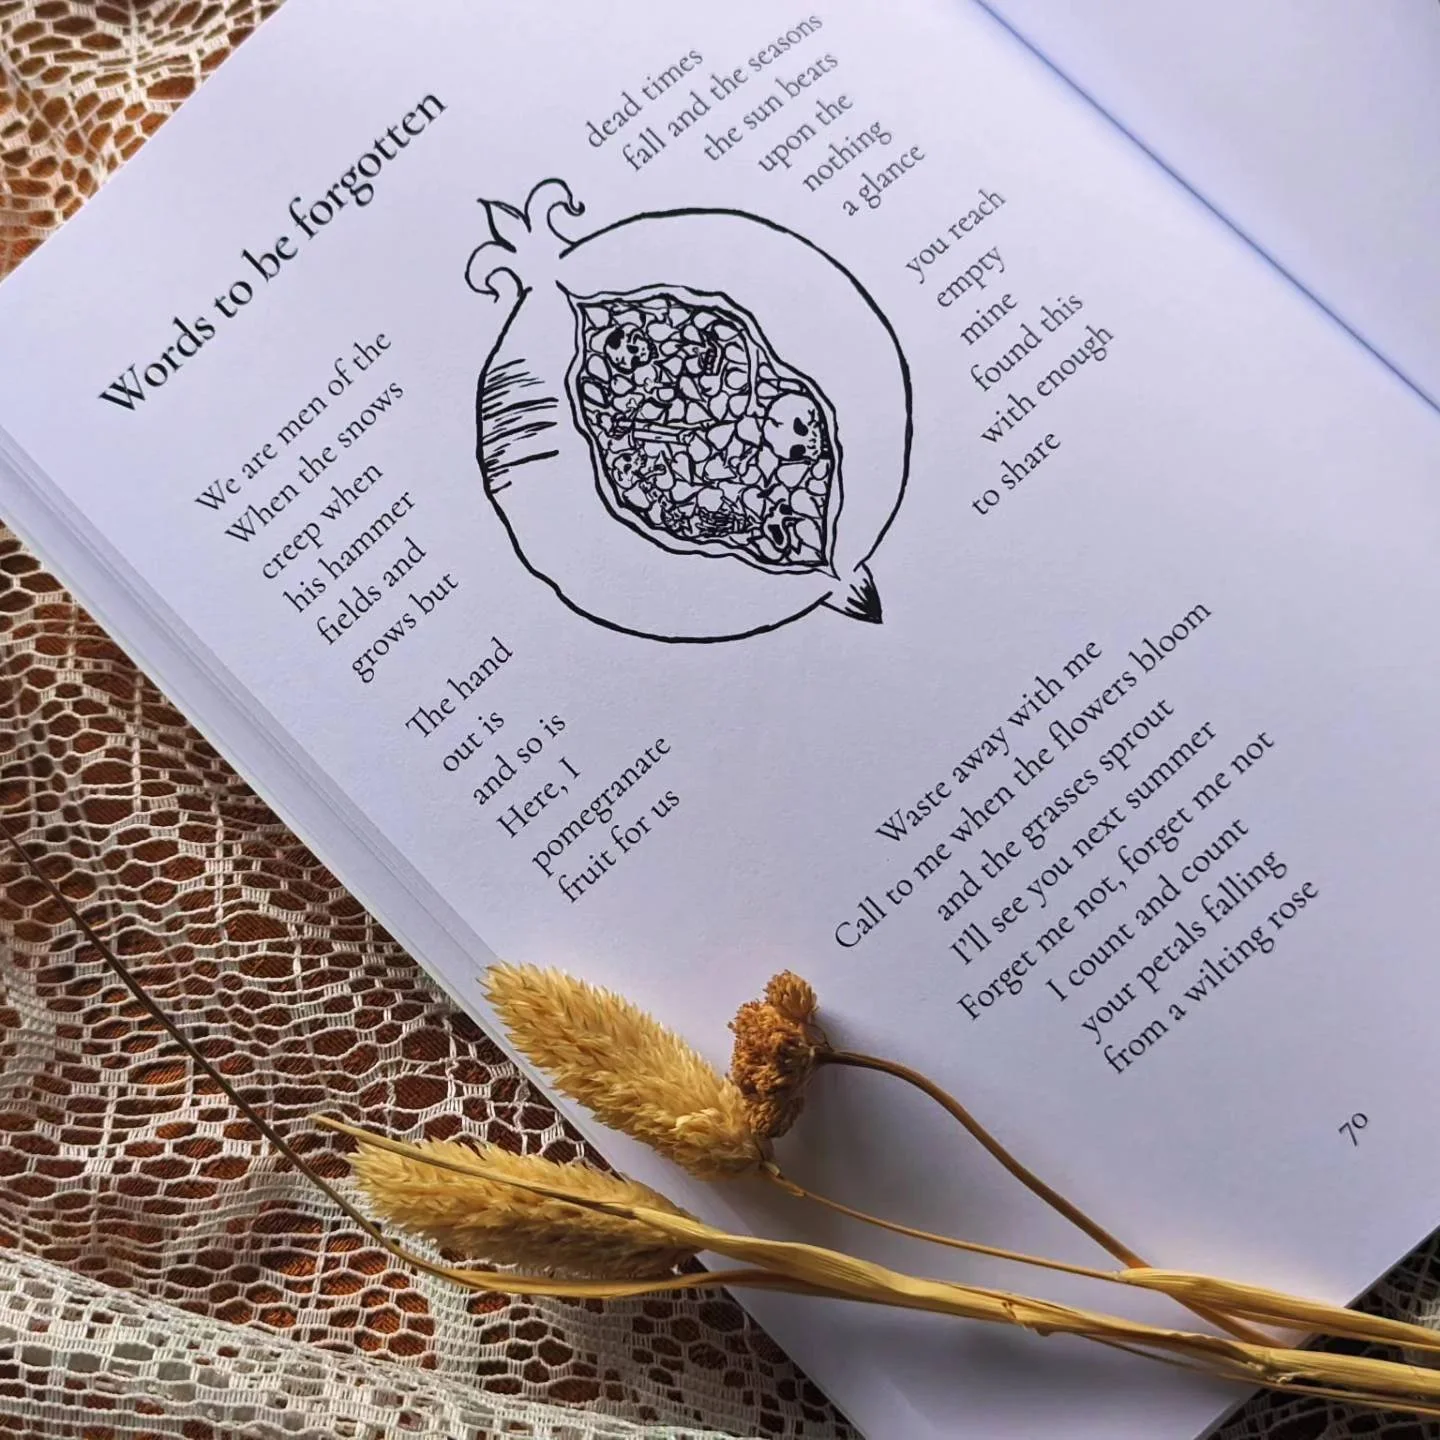 Words to be forgotten
We are men of the dead times
When the snows fall and the seasons
creep when the sun beats
his hammer upon the
fields and nothing
grows but a glance
The hand you reach
out is empty
and so is mine
Here, I found this
pomegranate with enough
fruit for us to share
Waste away with me
Call to me when the flowers bloom
and the grasses sprout
I'll see you next summer
Forget me not, forget me not
I count and count
your petals falling
from a wilting rose
70